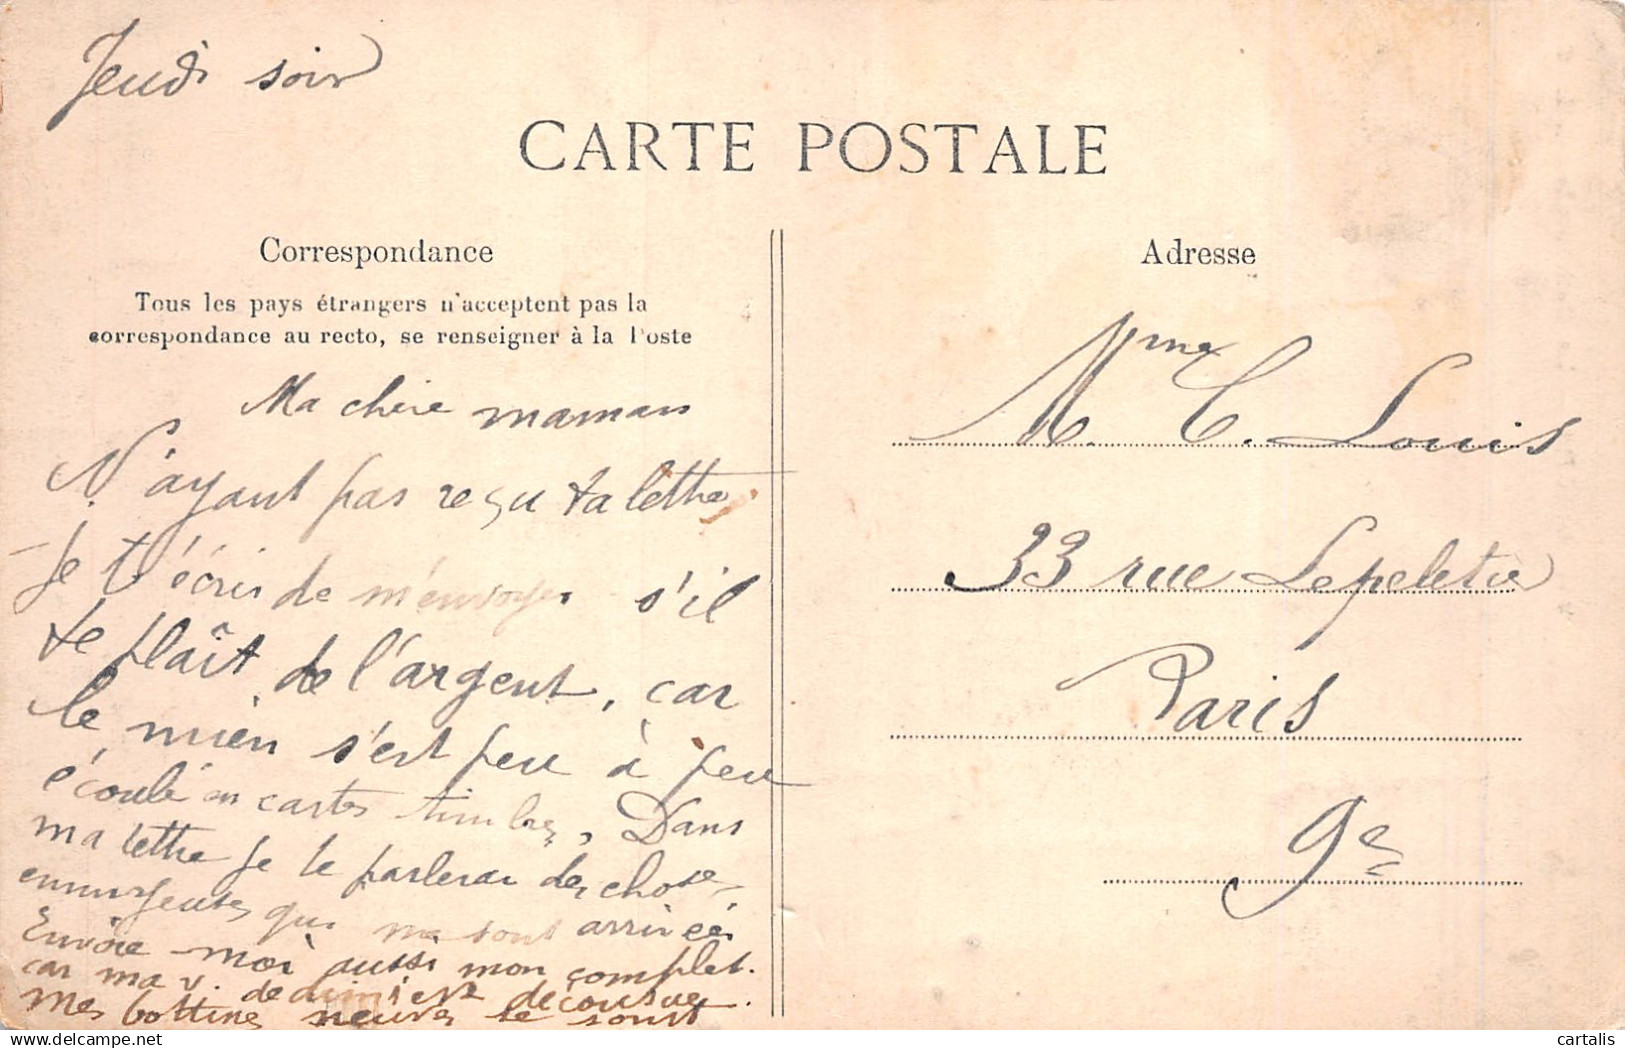 Jeudi soir
CARTE POSTALE
Correspondance
Tous les pays étrangers n'acceptent pas la
correspondance au recto, se renseigner à la Poste
Ma chère maman
N'ayant pas reçu ta lettre
je t'écris de m'envoyer s'il
te plaît de l'argent, car
le mien s'est peu à peu
écoulé en cartes timbres. Dans
ma lettre je te parlerai des choses
qui me sont arrivées
Envoie moi aussi mon complet.
car ma v. de est décousue.
Mes bottines neuves le sont
Adresse
Mme C. Louis
33 rue Lepeletier
Paris
9e
cartalis